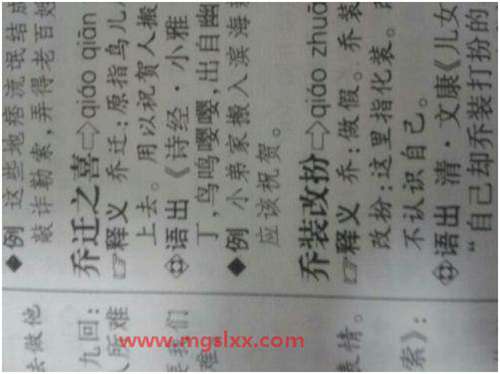 ◆例 这些地痞流氓结成
敲诈勒索，弄得老百姓
乔迁之喜⇨qiáo qiān
☞释义 乔迁：原指鸟儿
上去。用以祝贺人搬
语出《诗经·小雅
丁，鸟鸣嘤嘤，出自幽
◆例 小弟家搬入滨海
应该祝贺。
乔装改扮⇨qiáo zhuā
☞释义 乔：做假。乔装
改扮：这里指化装。
不认识自己。
语出 清·文康《儿女
“自己却乔装打扮的
去做他
九回：
人所难
我们
难
表情。
索》：
www.mgslxx.com